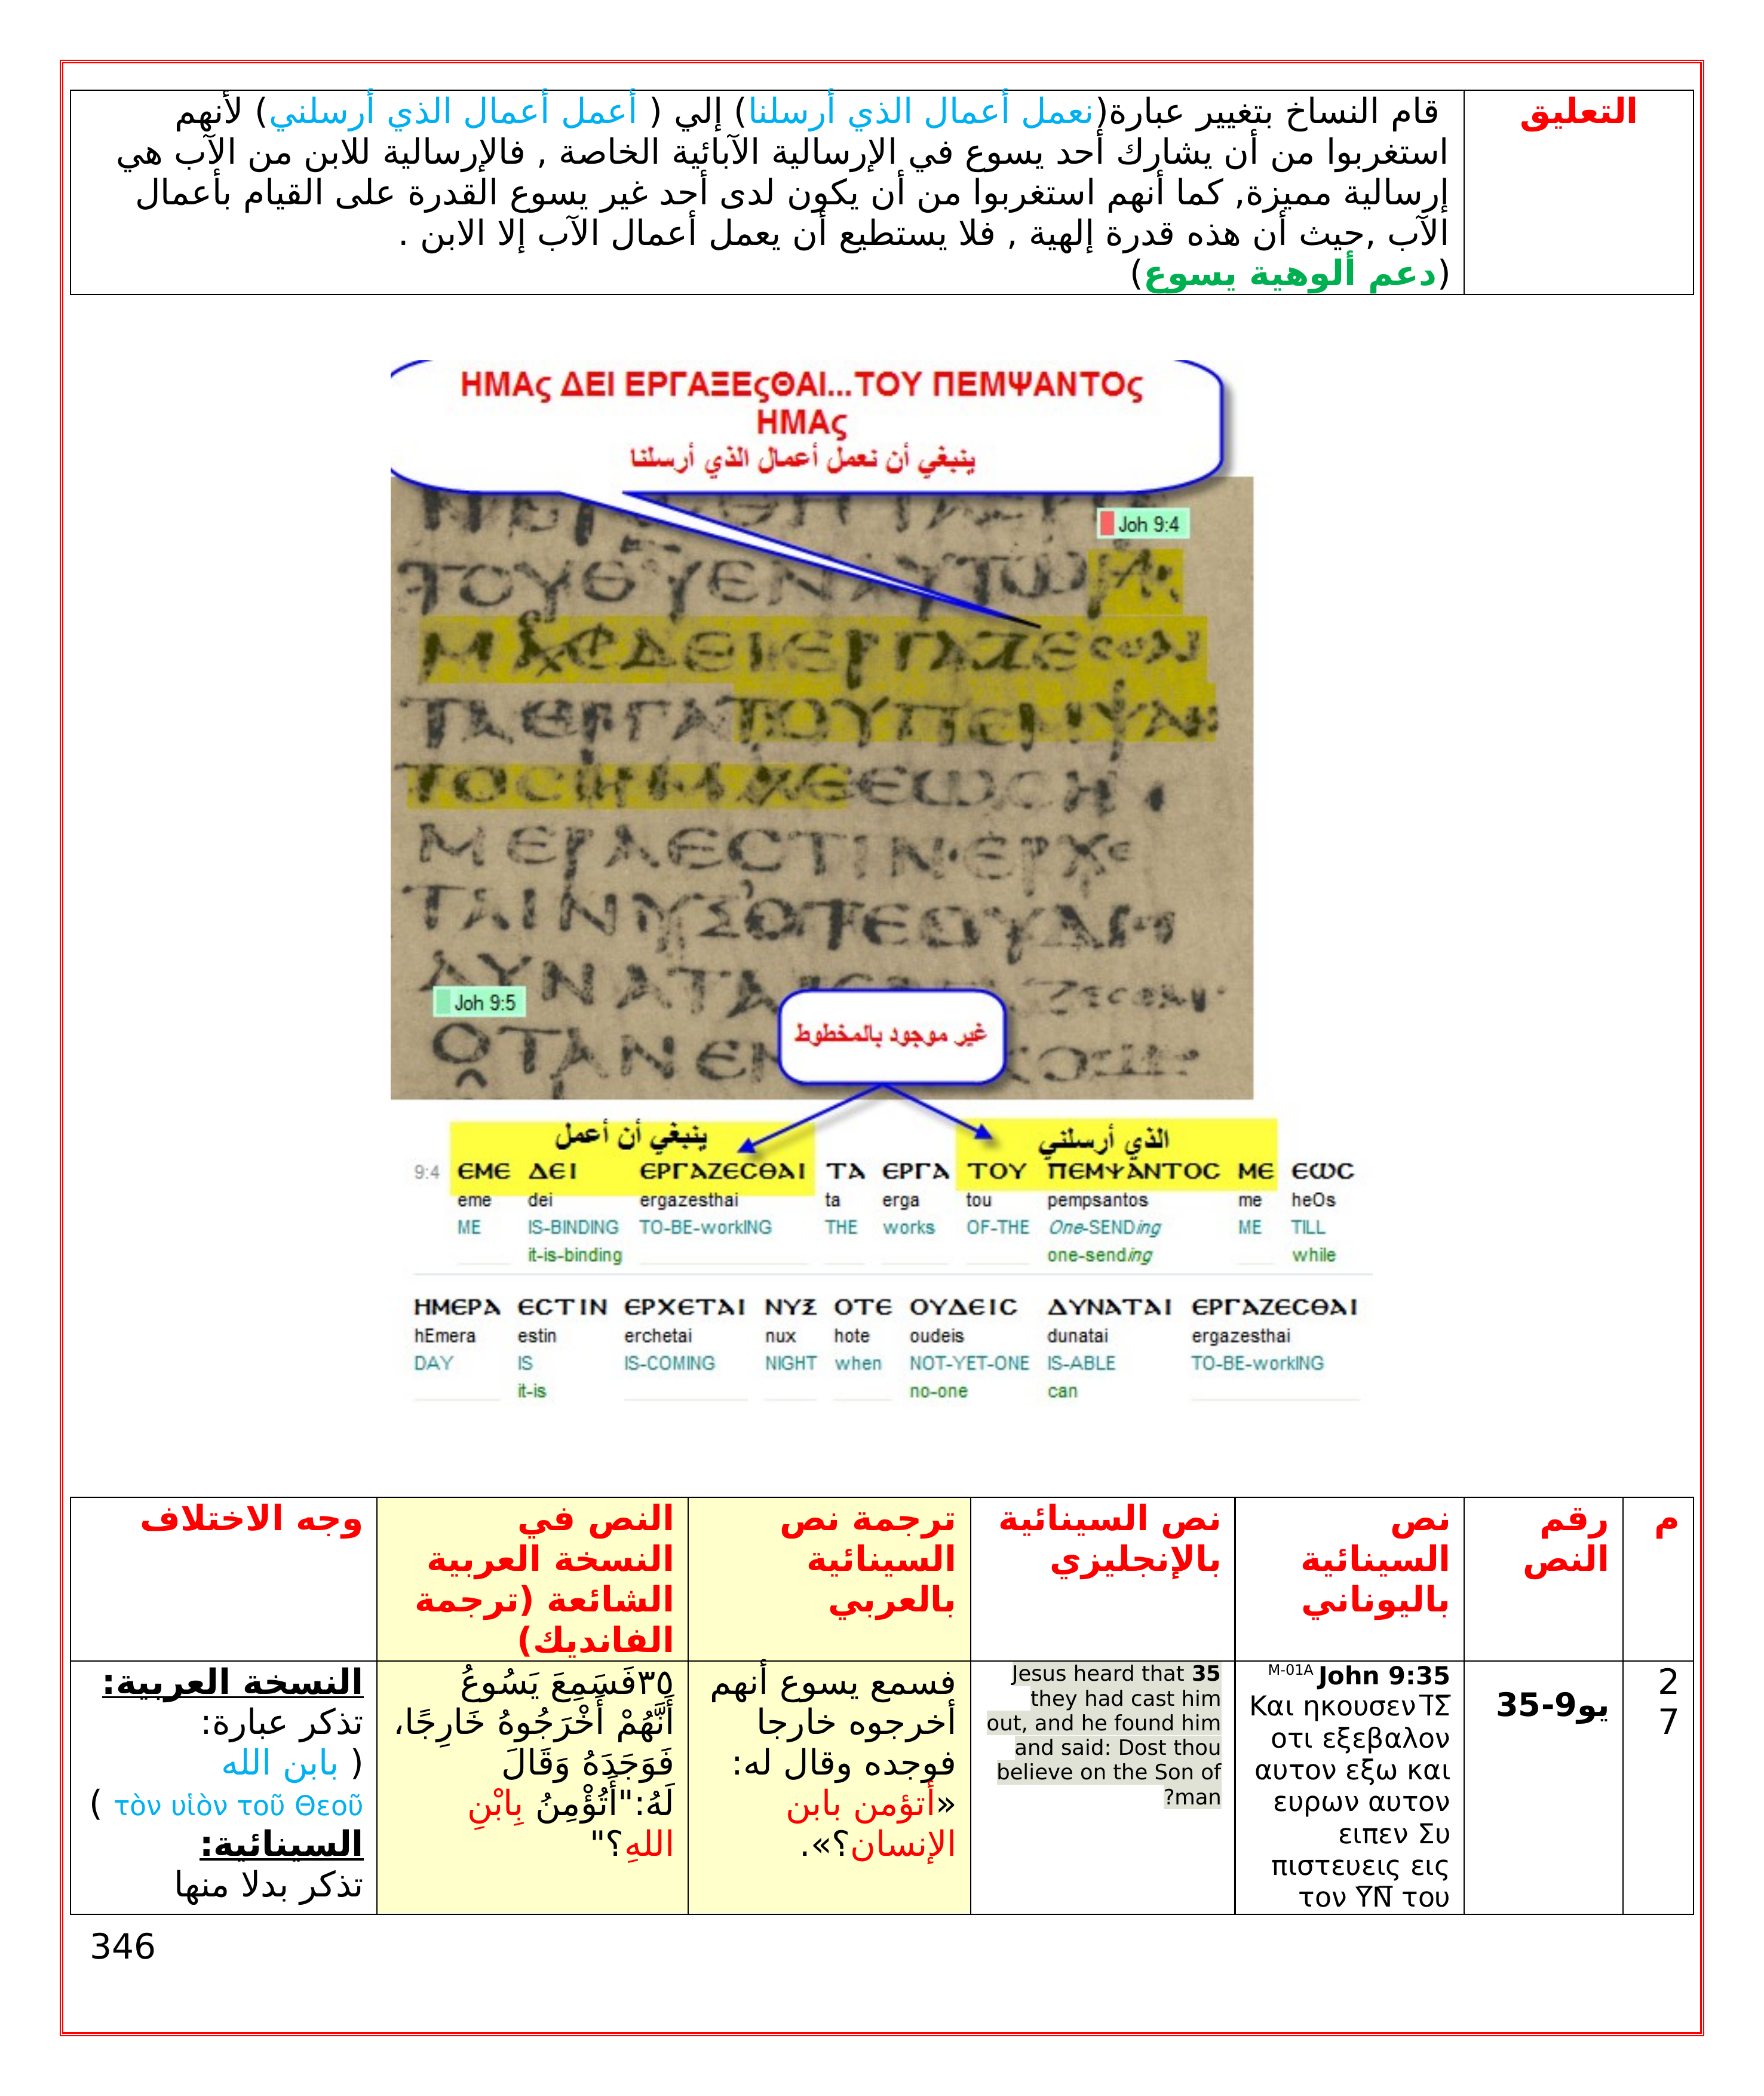 التعليق
قام النساخ بتغيير عبارة(نعمل أعمال الذي أرسلنا) إلي ( أعمل أعمال الذي أرسلني) لأنهم
استغربوا من أن يشارك أحد يسوع في الإرسالية الآبائية الخاصة , فالإرسالية للابن من الآب هي
إرسالية مميزة, كما أنهم استغربوا من أن يكون لدى أحد غير يسوع القدرة على القيام بأعمال
الآب ,حيث أن هذه قدرة إلهية , فلا يستطيع أن يعمل أعمال الآب إلا الابن .
(دعم ألوهية يسوع)
ΗΜΑς ΔΕΙ ΕΡΓΑΞΕςΘΑΙ...ΤΟΥ ΠΕΜΨΑΝΤΟς
ΗΜΑς
ينبغي أن نعمل أعمال الذي أرسلنا
Joh 9:4
ΤΟΥΘΥΕΝΑΥΤΩ
ΔΕΙΕΡΓΑΖΕϹΘΑΙ
ΤΑΕΡΓΑΤΟΥΠΕΜΨΑΝ
ΤΟϹΗΜΑϹΕΩϹΗ
ΜΕΡΑΕϹΤΙΝ·ΕΡΧΕ
ΤΑΙΝΥΞΟΤΕΟΥΔΙϹ
Joh 9:5
غير موجود بالمخطوط
ينبغي أن أعمل
الذي أرسلني
9:4 ΕΜΕ ΔΕΙ ΕΡΓΑΖΕϹΘΑΙ ΤΑ ΕΡΓΑ ΤΟΥ ΠΕΜΨΑΝΤΟϹ ΜΕ ΕΩϹ
eme dei ergazesthai ta erga tou pempsantos me heOs
ME IS-BINDING TO-BE-workING THE works OF-THE One-SENDing ME TILL
it-is-binding one-sending while
ΗΜΕΡΑ ΕϹΤΙΝ ΕΡΧΕΤΑΙ ΝΥΣ ΟΤΕ ΟΥΔΕΙϹ ΔΥΝΑΤΑΙ ΕΡΓΑΖΕϹΘΑΙ
hEmera estin erchetai nux hote oudeis dunatai ergazesthai
DAY IS IS-COMING NIGHT when NOT-YET-ONE IS-ABLE TO-BE-workING
it-is no-one can
م
رقم
النص
نص
السينائية
باليوناني
نص السينائية
بالإنجليزي
ترجمة نص
السينائية
بالعربي
النص في
النسخة العربية
الشائعة (ترجمة
الفانديك)
وجه الاختلاف
2
7
يو9-35
M-01A John 9:35
Και ηκουσεν Ι̅Σ̅
οτι εξεβαλον
αυτον εξω και
ευρων αυτον
ειπεν Συ
πιστευεις εις
τον Υ̅Ν̅ του
Jesus heard that 35
they had cast him
out, and he found him
and said: Dost thou
believe on the Son of
?man
فسمع يسوع أنهم
أخرجوه خارجا
فوجده وقال له:
«أتؤمن بابن
الإنسان؟».
٣٥فَسَمِعَ يَسُوعُ
أَنَّهُمْ أَخْرَجُوهُ خَارِجًا،
فَوَجَدَهُ وَقَالَ
لَهُ:"أَتُؤْمِنُ بِابْنِ
اللهِ؟"
النسخة العربية:
تذكر عبارة:
( بابن الله
τὸν υἱὸν τοῦ Θεοῦ )
السينائية:
تذكر بدلا منها
346